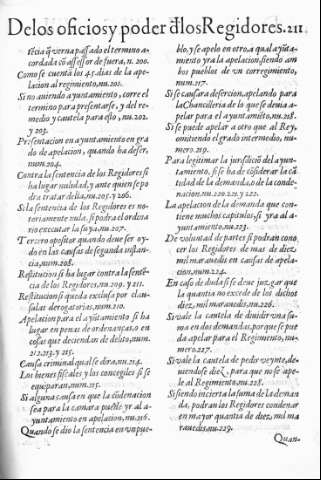 De los oficios y poder đlos Regidores. 212
tēcia q̄ verna passado el termino a-
cordada cō assessor de fuera, n. 200.
Como se cuentā los 45. dias de la ape-
lacion al regimiento, nu. 201.
Si no auiendo ayuntamiento, corre el
termino para presentarse, y del re-
medio y cautela para esso, nu. 202.
y 203.
Presentacion en ayuntamiento en gra
do de apelacion, quando ha de ser,
num. 204.
Contra la sentencia de los Regidores si
ha lugar nulidad, y ante quien se po
dra tratar della, nu. 205. y 206.
Si la sentencia de los Regidores es no-
toriamente nula, si podra el ordena
rio executar la suya, nu. 207.
Tercero opositor quando deue ser oy-
do en las causas de segunda instan-
cia, num. 208.
Restitucion si ha lugar contra la sentē-
cia de los Regidores, nu. 209. y 211.
Restituciō si queda exclusa por clau-
sulas derogatorias, num. 210.
Apelacion para el ayūtamiento si ha
lugar en penas de ordenanças, o en
cosas que deciendan de delito, num.
212. 213. y 215.
Causa criminal qual se diro, nu. 214.
Los bienes fiscales y los concegiles si se
equiparan, num. 215.
Si alguna causa en que la cōdenacion
sea para la camara puede yr al a-
yuntamiento en apelacion, nu. 216.
Quando se dio la sentencia en vn pue-
blo, y se apelo en otro, a qual ayūta-
miento yra la apelacion, siendo am
bos pueblos de vn corregimiento,
num. 217.
Si se causara desercion, apelando para
la Chancilleria de lo que se deuia a-
pelar para el ayuntamiēto, nu. 218.
Si se puede apelar a otro que al Rey,
omitiendo el grado intermedio, nu-
mero. 219.
Para legitimar la jurisdiciō del ayun-
tamiento, si se ha de cōsiderar la cā-
tidad de la demanda, o de la conde-
nacion, nu. 220. 221. y 222.
La apelacion de la demanda que con-
tiene muchos capitulos, si yra al a-
yuntamiento, nu. 223.
De voluntad de partes si podran cono-
cer los Regidores de mas de diez,
mil marauedis en causas de apela-
cion, num. 224.
En caso de duda si se deue juzgar que
la quantia no excede de los dichos
diez mil marauedis, nu. 226.
Si vale la cautela de diuidir vna su-
ma en dos demandas, porque se pue
da apelar para el Regimiento, nu-
mero. 227.
Si vale la cautela de pedir veynte, de-
uiendose diez, para que no se ape-
le al Regimiento, nu. 228.
Si siendo incierta la suma de la deman
da, podran los Regidores condenar
en mayor quantia de diez mil ma
rauedis, nu. 229.
Quan-